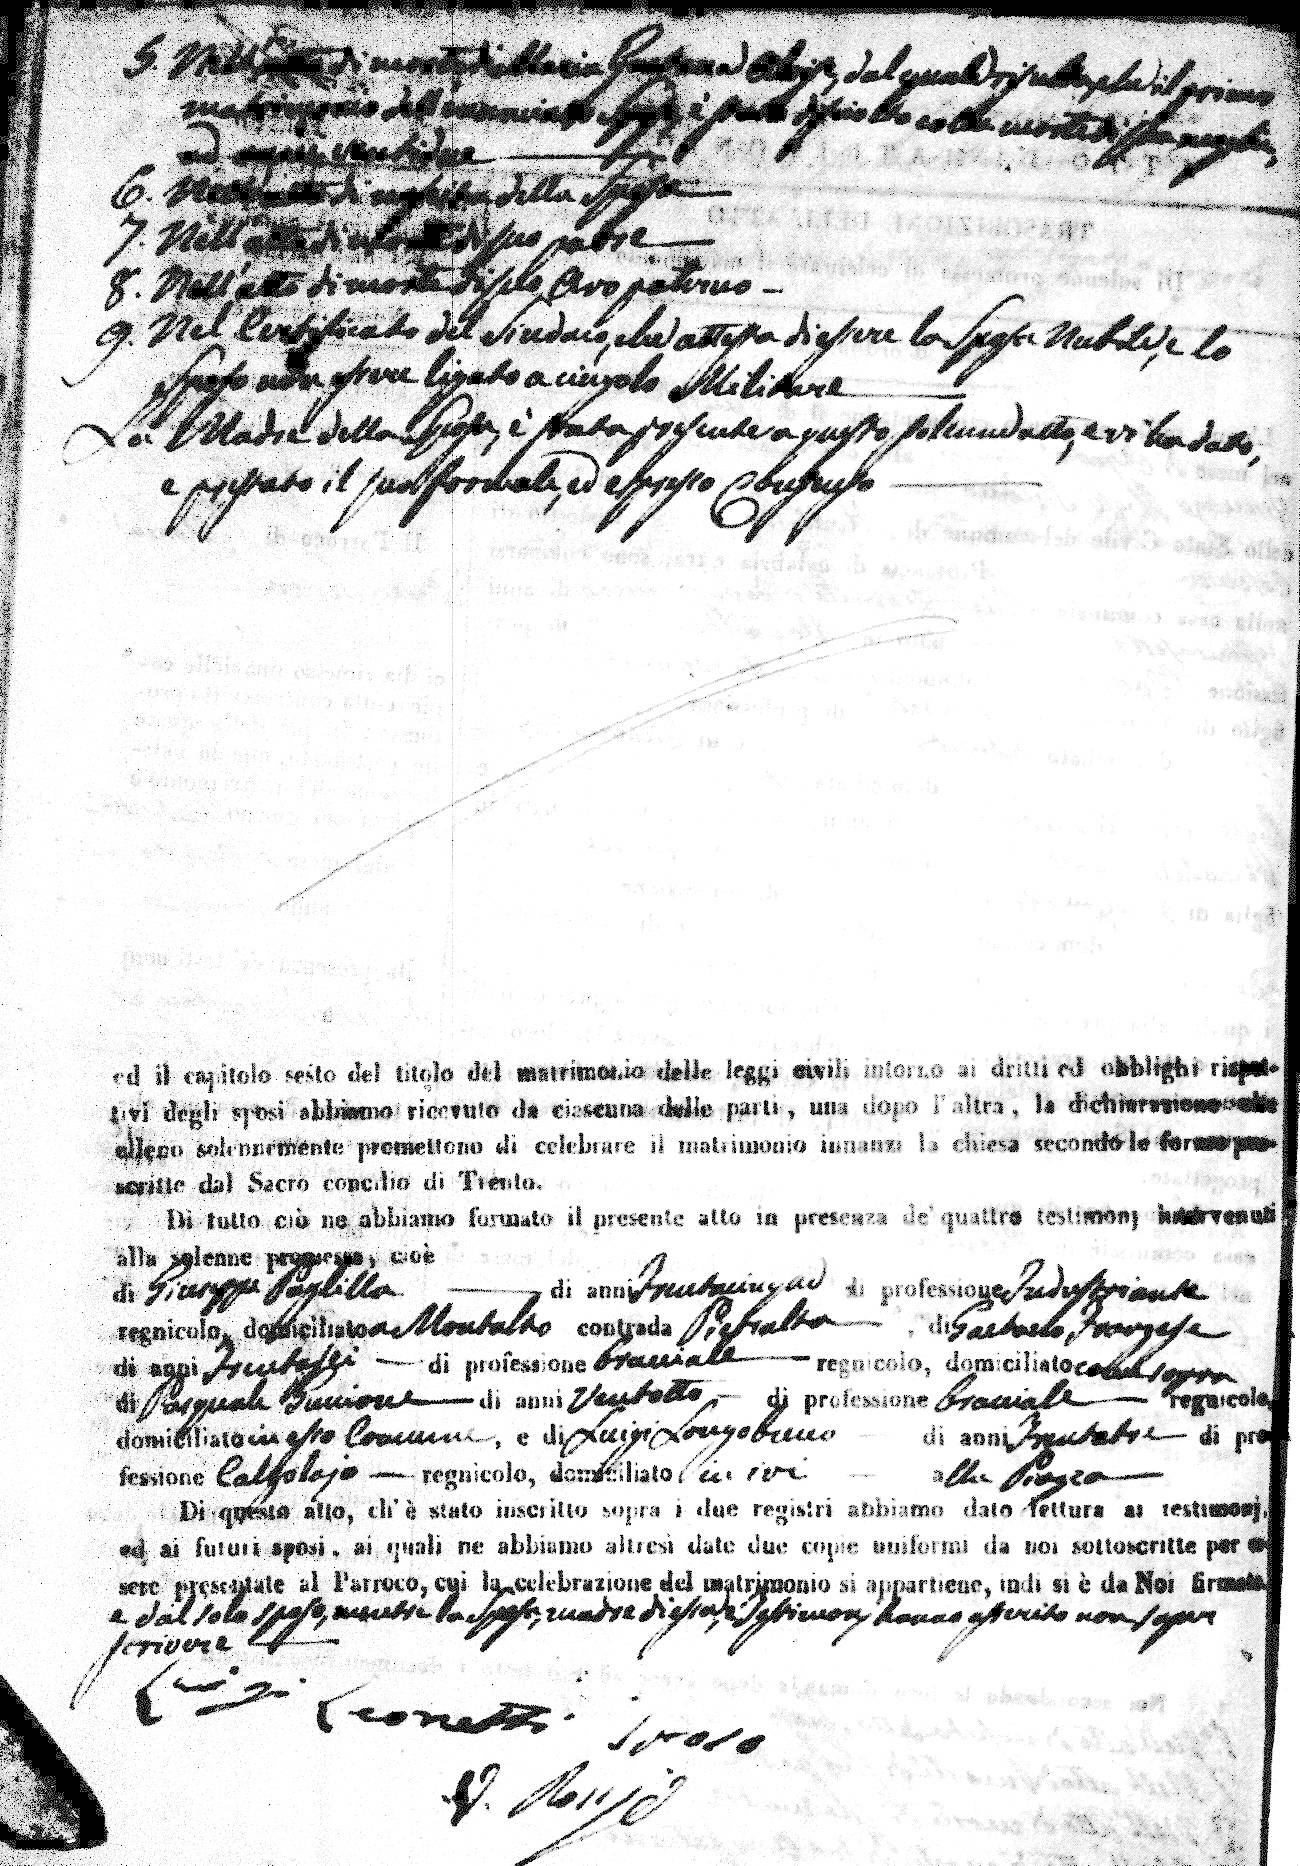 5. Nell'atto di morte di Maria Gaetana d'Aloise, dal quale risulta, che il primo
matrimonio dell'enunciato Sposo, è stato disciolto colla morte di sua moglie,
6. Nell'atto di nascita della Sposa
7. Nell'atto di morte di suo padre
8. Nell'atto di morte di suo Avo paterno
9. Nel Certificato del Sindaco, che attesta di essere la Sposa Nubile, e lo
Sposo non essere ligato a cingolo Militare
La Madre della Sposa, è stata presente a questo solenne atto, e vi ha dato,
e prestato il suo formale, ed espresso Consenso
ed il capitolo sesto del titolo del matrimonio delle leggi civili intorno ai dritti ed obblighi rispet-
tivi degli sposi abbiamo ricevuto da ciascuna delle parti, una dopo l'altra, la dichiarazione che
elleno solennemente promettono di celebrare il matrimonio innanzi la chiesa secondo le forme pre-
scritte dal Sacro concilio di Trento.
Di tutto ciò ne abbiamo formato il presente atto in presenza de' quattro testimonj intervenuti
alla solenne promessa, cioè
di Giuseppe Paglilla di anni Trentacinque di professione Industriante
regnicolo, domiciliato a Montalto contrada Pietralta, di Gaetano Iorgese
di anni Trentasei di professione bracciale regnicolo, domiciliato come sopra
di Pasquale di anni Ventotto di professione bracciale regnicolo,
domiciliato in esso Comune, e di Luigi Longobucco di anni Trentatre di pro-
fessione Calzolajo regnicolo, domiciliato ivi alla Piazza
Di questo atto, ch'è stato inscritto sopra i due registri abbiamo dato lettura ai testimonj,
ed ai futuri sposi, ai quali ne abbiamo altresì date due copie uniformi da noi sottoscritte per es-
sere presentate al Parroco, cui la celebrazione del matrimonio si appartiene, indi si è da Noi firmato,
e dal solo sposo, mentre la Sposa, madre di essa, e Testimonj hanno asserito non saper
scrivere
Luigi Leonetti sposo